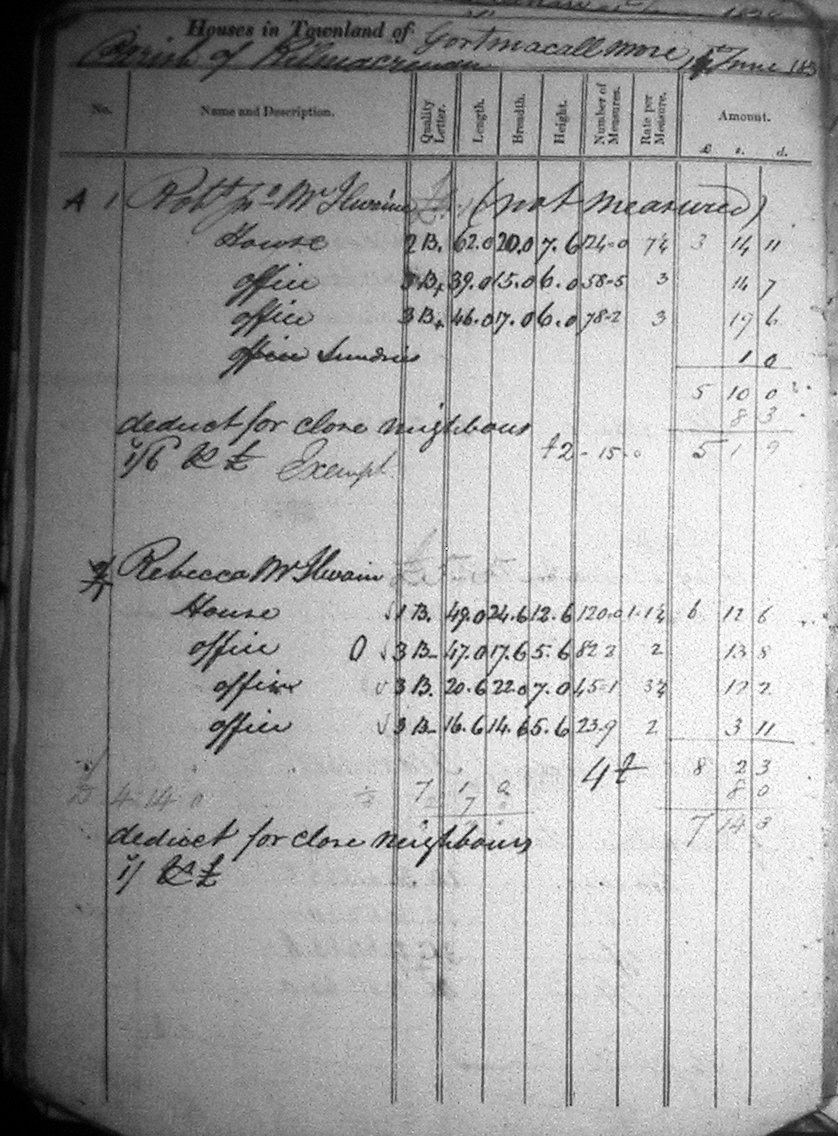 Houses in Townland of Gortmacall more
Parish of Kilmacrenan June 183
No. Name and Description. Quality Letter. Length. Breadth. Height. Number of Measures. Rate per Measure. Amount.
£ s. d.
A 1 Robt McIlwaine (not measured)
House 2 B. 62.0 20.0 7.6 124-0 7¼ 3 14 11
office 3 B+ 39.0 15.0 6.0 58-5 3 14 7
office 3 B+ 46.0 17.0 6.0 78-2 3 19 6
office Sundries 1 0
5 10 0
deduct for close neighbours 8 3
1/6 £ Exempt £2-15-0 5 1 9
2 Rebecca McIlwain
House √1 B. 49.0 24.6 12.6 120-0 1-1¼ 6 12 6
office 0 √3 B- 47.0 17.6 5.6 82 2 2 13 8
office √3 B. 20.6 22.0 7.0 45-1 3¼ 12 2
office √3 B- 16.6 14.6 5.6 23-9 2 3 11
4£ 8 2 3
4 14 0 7 1 8 0
7 7 14 3
deduct for close neighbours
1/ £